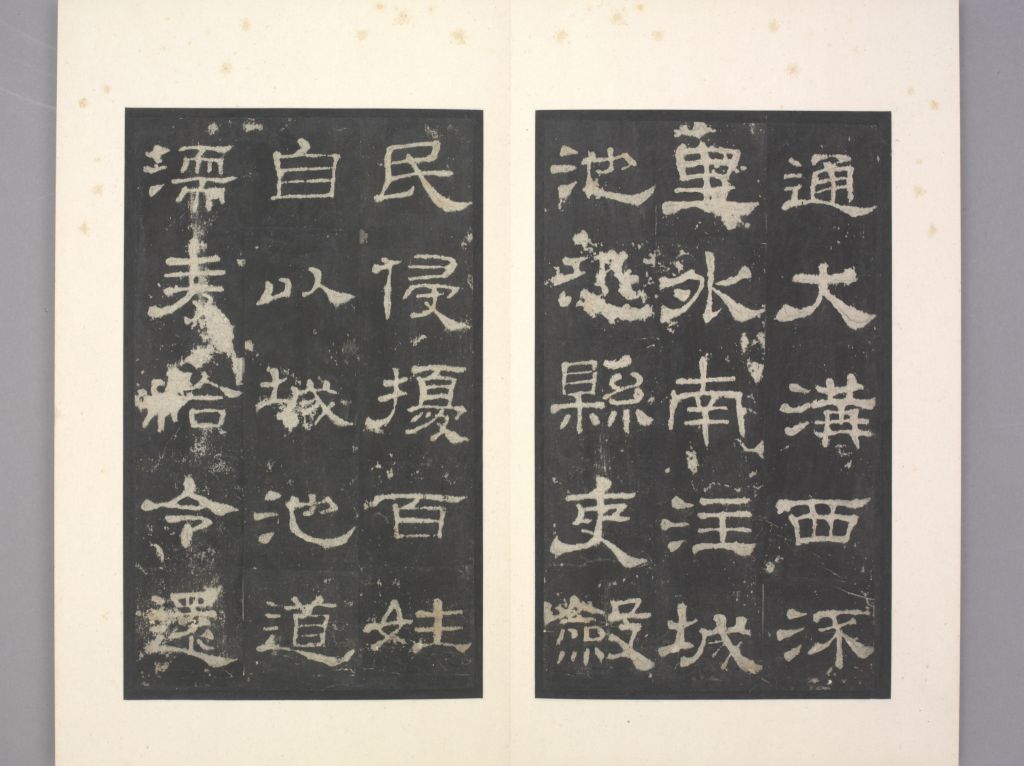 通大溝西流
里外南注城
池恐縣吏斂
民侵擾百姓
自以城池道
濡麦給令還